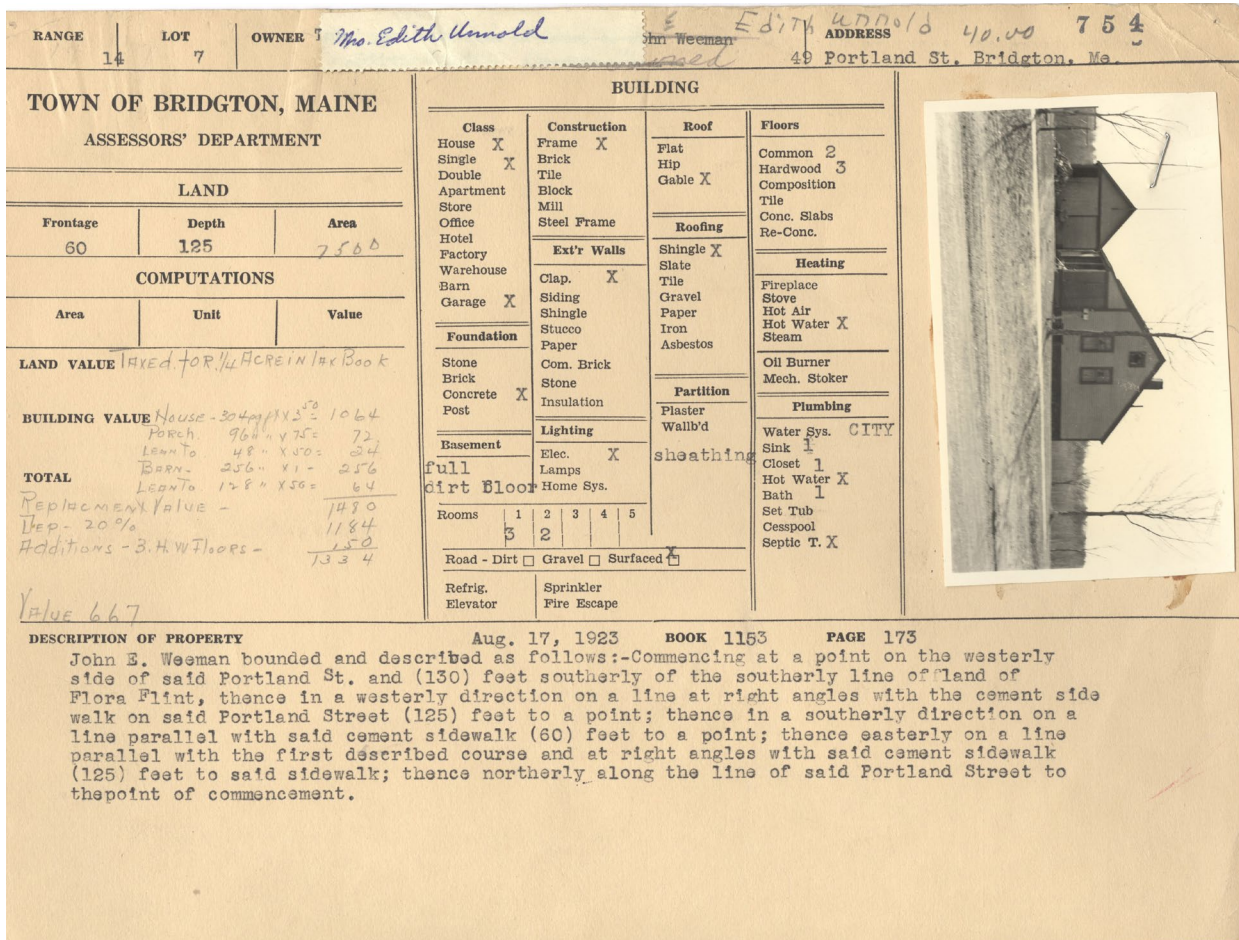 RANGE 14 LOT 7 OWNER Mrs. Edith Unnold John Weeman Edith Unnold ADDRESS 40.00 754
49 Portland St. Bridgton, Me.
TOWN OF BRIDGTON, MAINE
ASSESSORS' DEPARTMENT
LAND
Frontage Depth Area
60 125 7500
COMPUTATIONS
Area Unit Value
LAND VALUE Taxed for 1/4 Acre in Tax Book
BUILDING VALUE House - 304 X 3.50 = 1064
Porch 96 " " X 75 = 72
Leanto 48 " X 50 = 24
TOTAL
Barn - 256 " X 1 - 256
Leanto 128 " X 50 = 64
Replacment Value - 1480
Dep - 20 % 1184
Additions - 3. H. W Floors - 150
1334
Value 667
BUILDING
Class
House X
Single X
Double
Apartment
Store
Office
Hotel
Factory
Warehouse
Barn
Garage X
Foundation
Stone
Brick
Concrete X
Post
Basement
full
dirt floor
Construction
Frame X
Brick
Tile
Block
Mill
Steel Frame
Ext'r Walls
Clap. X
Siding
Shingle
Stucco
Paper
Com. Brick
Stone
Insulation
Lighting
Elec. X
Lamps
Home Sys.
Rooms 1 2 3 4 5
3 2
Road - Dirt □ Gravel □ Surfaced X
Refrig. Sprinkler
Elevator Fire Escape
Roof
Flat
Hip
Gable X
Roofing
Shingle X
Slate
Tile
Gravel
Paper
Iron
Asbestos
Partition
Plaster
Wallb'd
sheathing
Floors
Common 2
Hardwood 3
Composition
Tile
Conc. Slabs
Re-Conc.
Heating
Fireplace
Stove
Hot Air
Hot Water X
Steam
Oil Burner
Mech. Stoker
Plumbing
Water Sys. CITY
Sink 1
Closet 1
Hot Water X
Bath 1
Set Tub
Cesspool
Septic T. X
DESCRIPTION OF PROPERTY Aug. 17, 1923 BOOK 1153 PAGE 173
John E. Weeman bounded and described as follows:-Commencing at a point on the westerly
side of said Portland St. and (130) feet southerly of the southerly line of land of
Flora Flint, thence in a westerly direction on a line at right angles with the cement side
walk on said Portland Street (125) feet to a point; thence in a southerly direction on a
line parallel with said cement sidewalk (60) feet to a point; thence easterly on a line
parallel with the first described course and at right angles with said cement sidewalk
(125) feet to said sidewalk; thence northerly along the line of said Portland Street to
thepoint of commencement.